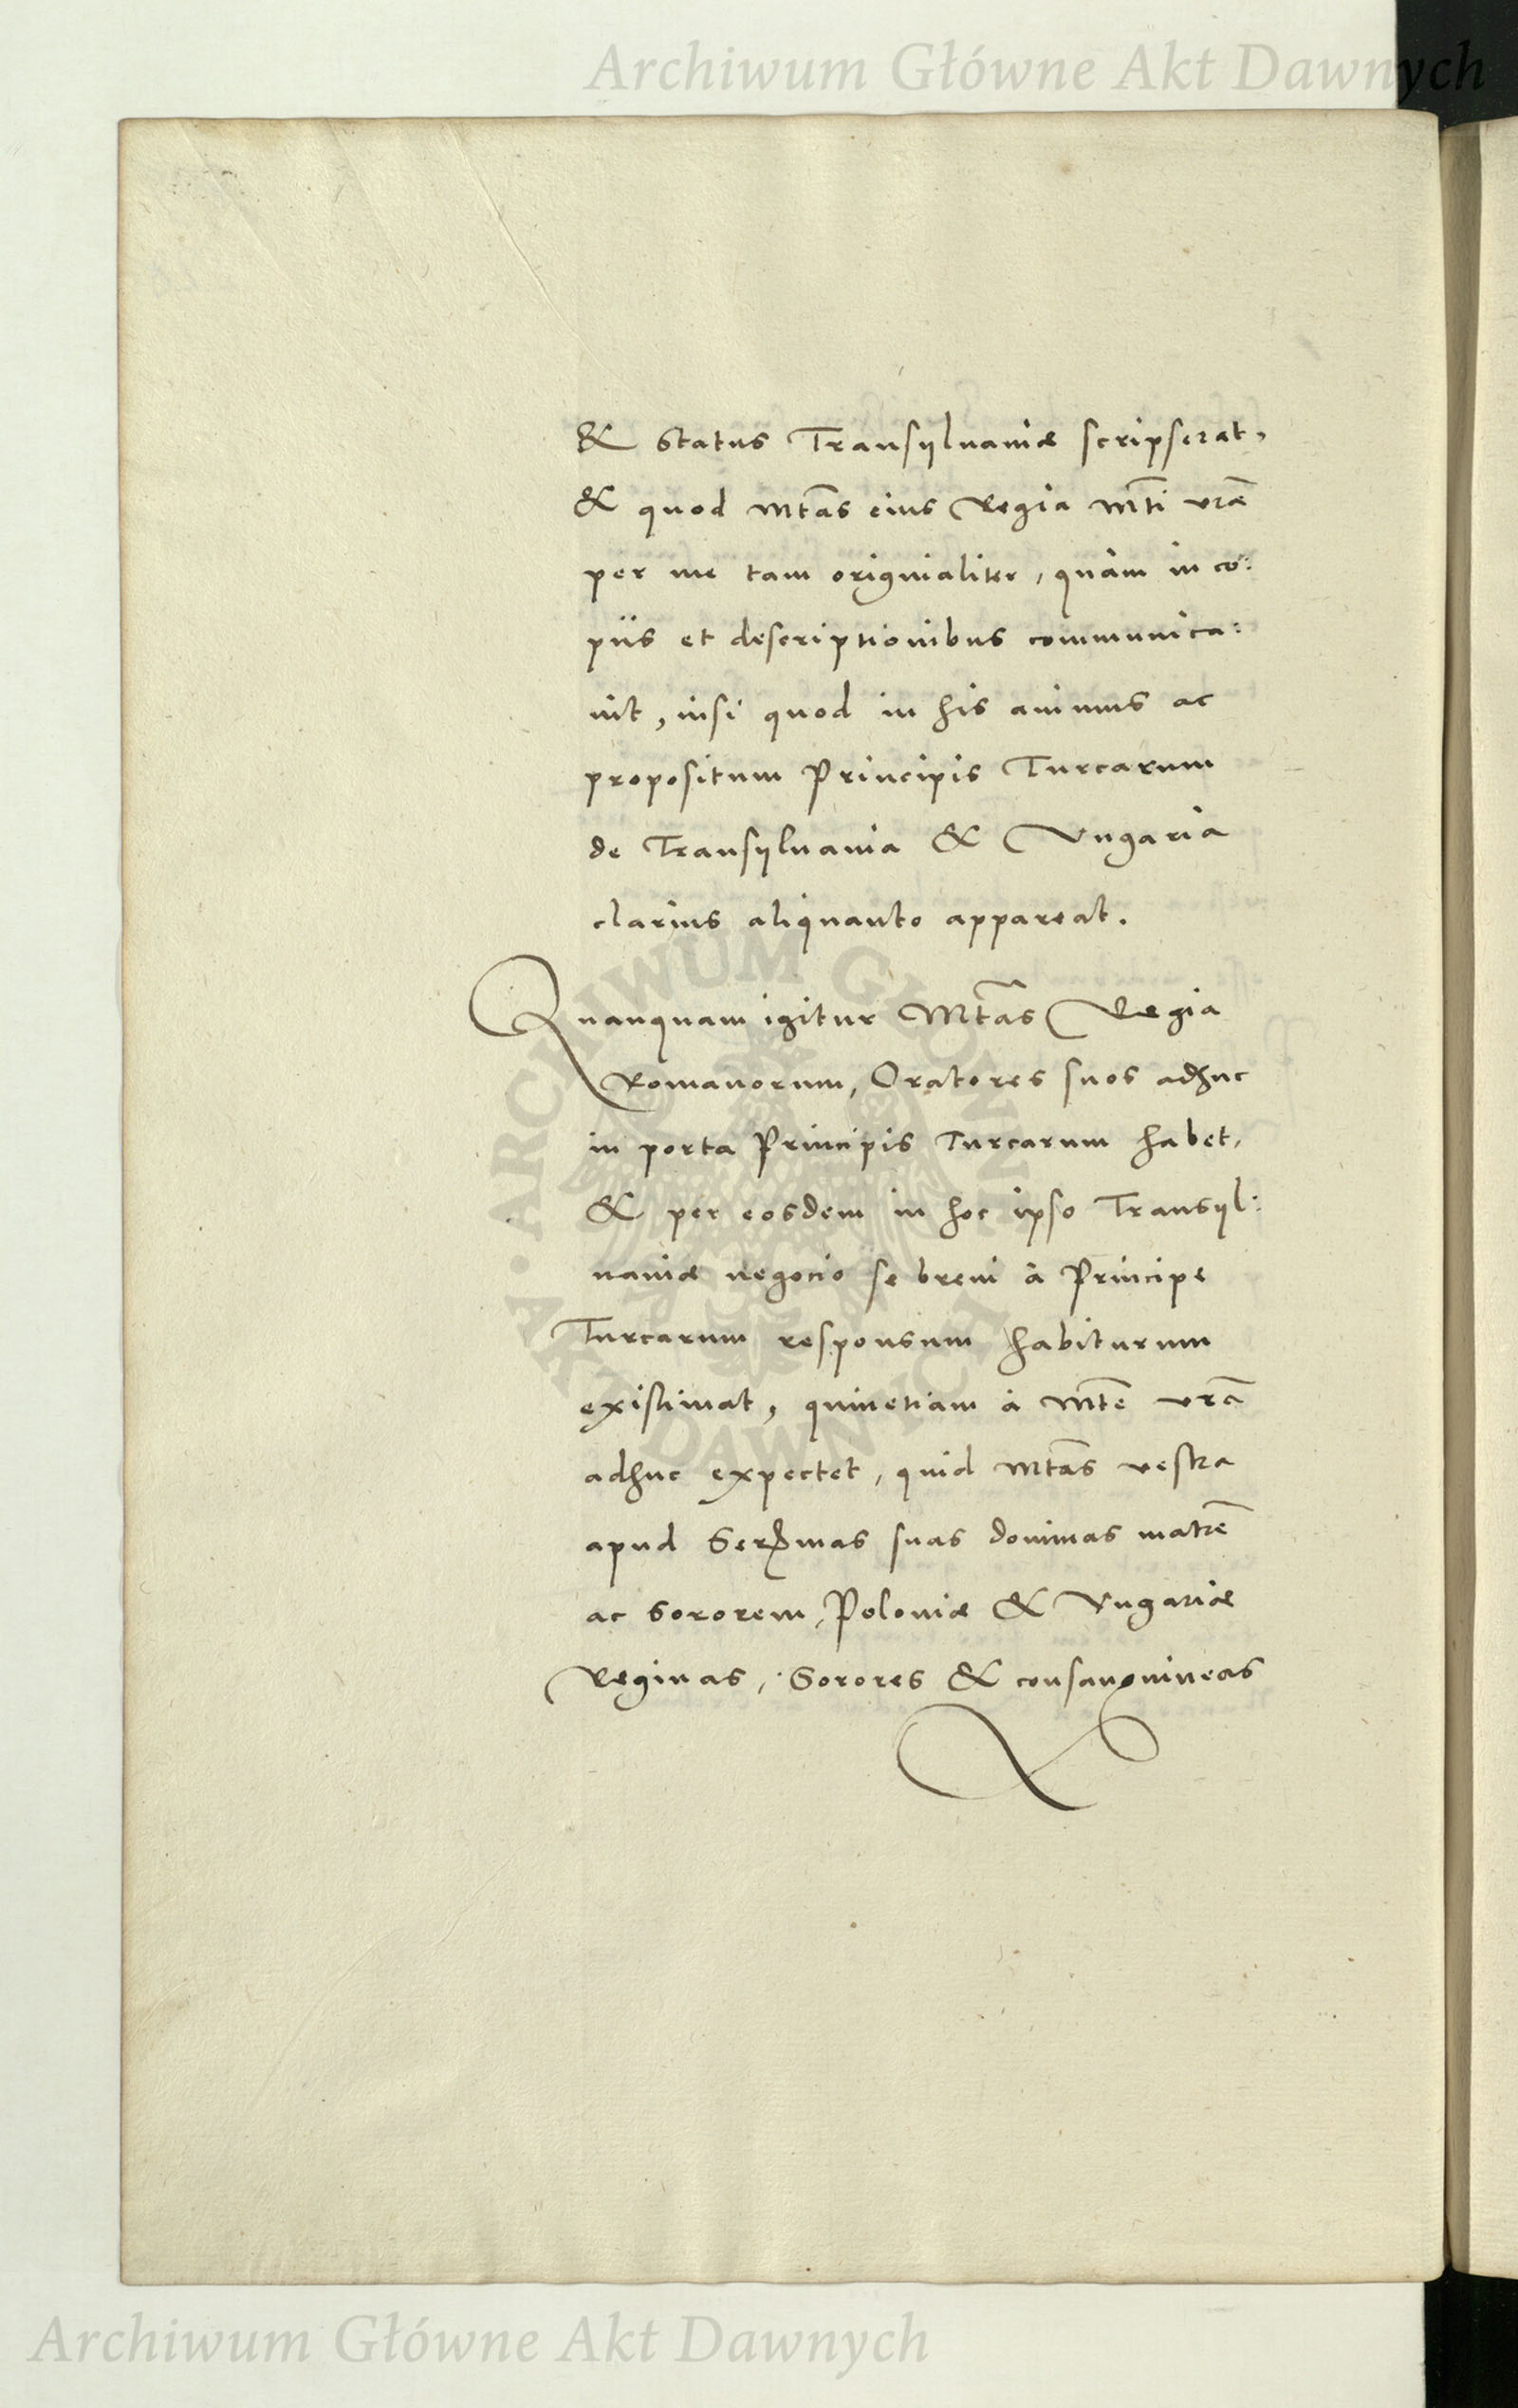 Archiwum Główne Akt Dawnych
& Status Transÿluaniæ scripserat,
& quod Mtās eius Regia Mti̅ vrae̅
per me tam originialiter, quàm in co:
piis et descriptionibus communica:
uit, nisi quod in his animus ac
propositum Principis Turcarum
de Transÿluania & Vngaria
clarius aliquanto appareat.
Quanquam igitur Mtās Regia
Romanorum, Oratores suos adhuc
in porta Principis Turcarum habet,
& per eosdem in hoc ipso Transÿl:
uaniæ negocio se breui à Principe
Turcarum responsum habiturum
existimat, quinetiam à Mte̅ vra̅
adhuc expectet, quid Mtās vestra
apud Ser̅mas suas dominas matre̅
ac Sororem, Poloniæ & Vngariæ
Reginas, Sorores & consanguineas
ARCHIWUM GŁÓWNE AKT DAWNYCH
Archiwum Główne Akt Dawnych